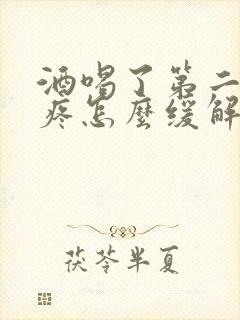 酒喝了第二
疼怎麼缓解
茯苓半夏